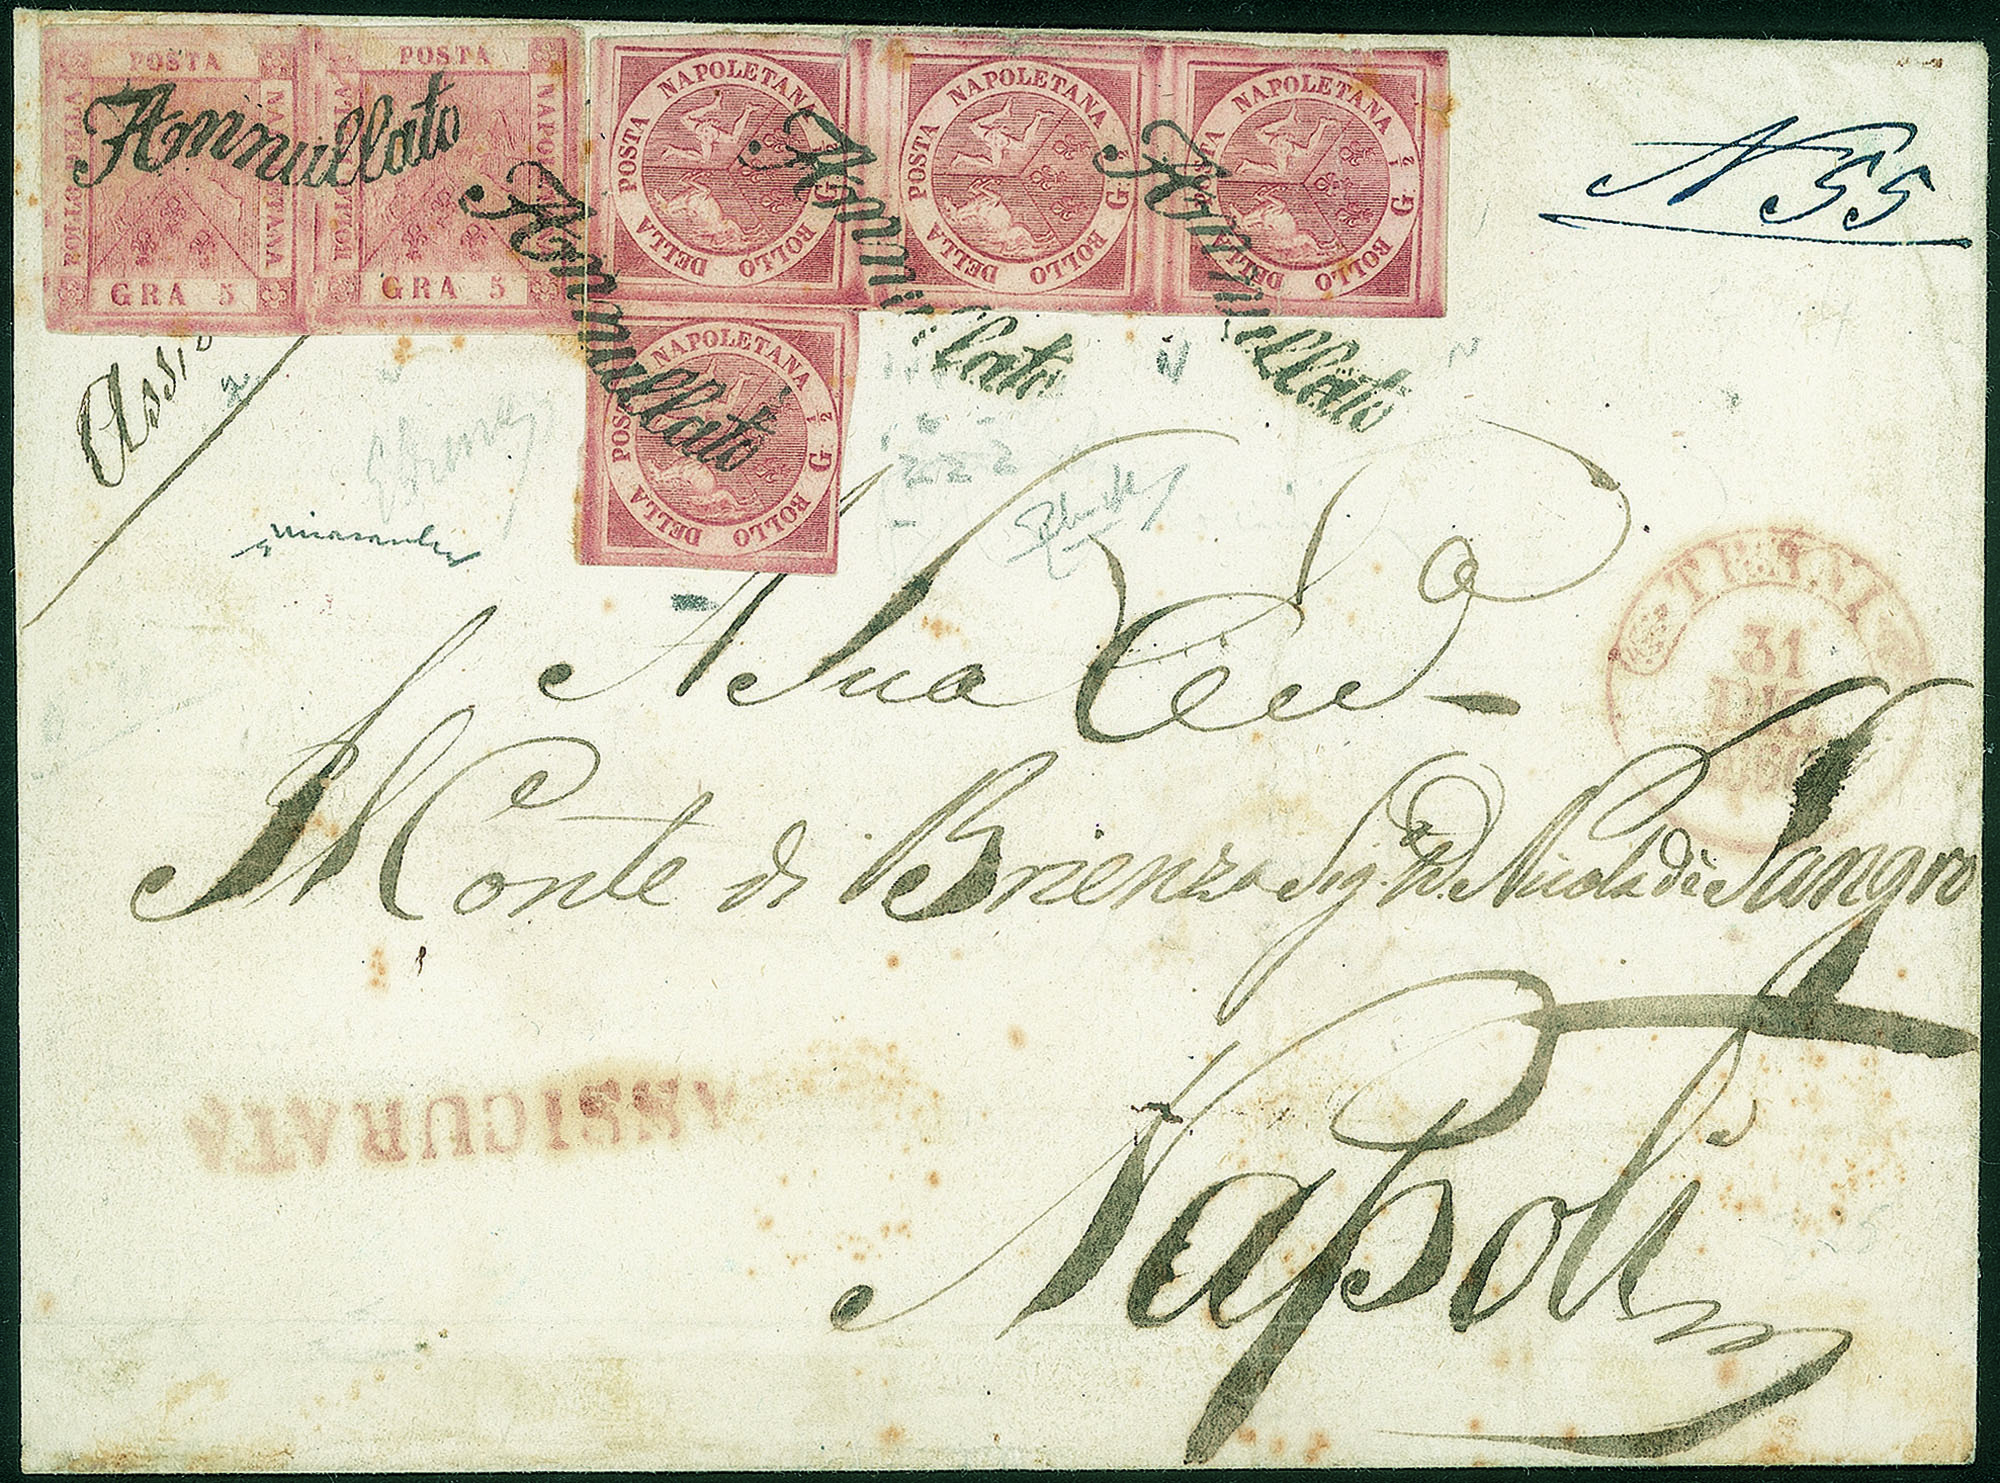 POSTA
BOLLO DELLA
NAPOLETANA
GRA 5
POSTA
BOLLO DELLA
NAPOLETANA
GRA 5
POSTA NAPOLETANA
G. 1/2
BOLLO DELLA
POSTA NAPOLETANA
G. 1/2
BOLLO DELLA
POSTA NAPOLETANA
G. 1/2
BOLLO DELLA
POSTA NAPOLETANA
G. 1/2
BOLLO DELLA
Annullato
Annullato
Annullato
Annullato
N 55
Assi
222
A Sua Ecc.a
31
DIC
Il Conte di Brienza Sig. D. Nicola di Sangro
ASSICURATA
Napoli